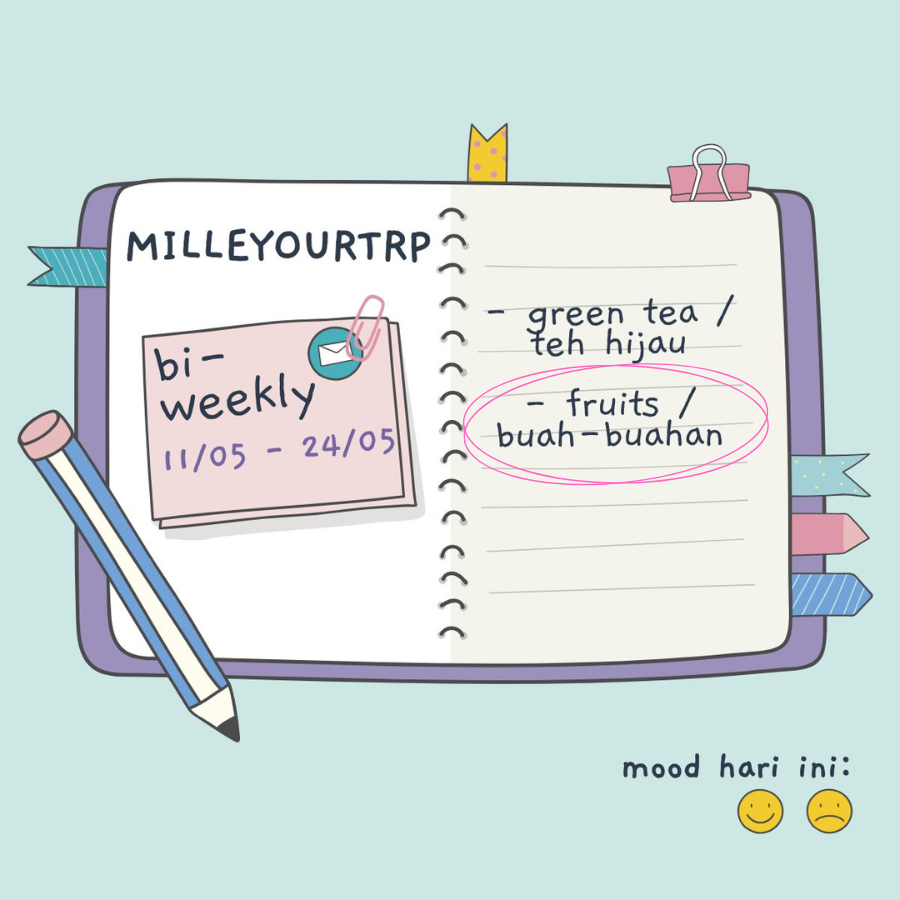 MILLEYOURTRP
bi-
weekly
11/05 - 24/05
- green tea /
teh hijau
- fruits /
buah-buahan
mood hari ini: